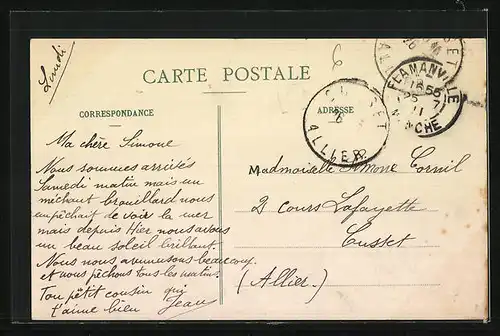 Lundi
CARTE POSTALE
CORRESPONDANCE
ADRESSE
6
FLAMANVILLE
MANCHE
CUSSET
ALLIER
Ma chère Simone
Nous sommes arrivés
Samedi matin mais un
méchant brouillard nous
empêchait de voir la mer
mais depuis Hier nous avons
un beau soleil brillant.
Nous nous amusons beaucoup
et nous pêchons tous les matins.
Ton petit cousin qui
t'aime bien Jean
Madmoiselle Simone Cornil
2 cours Lafayette
Cusset
(Allier.)